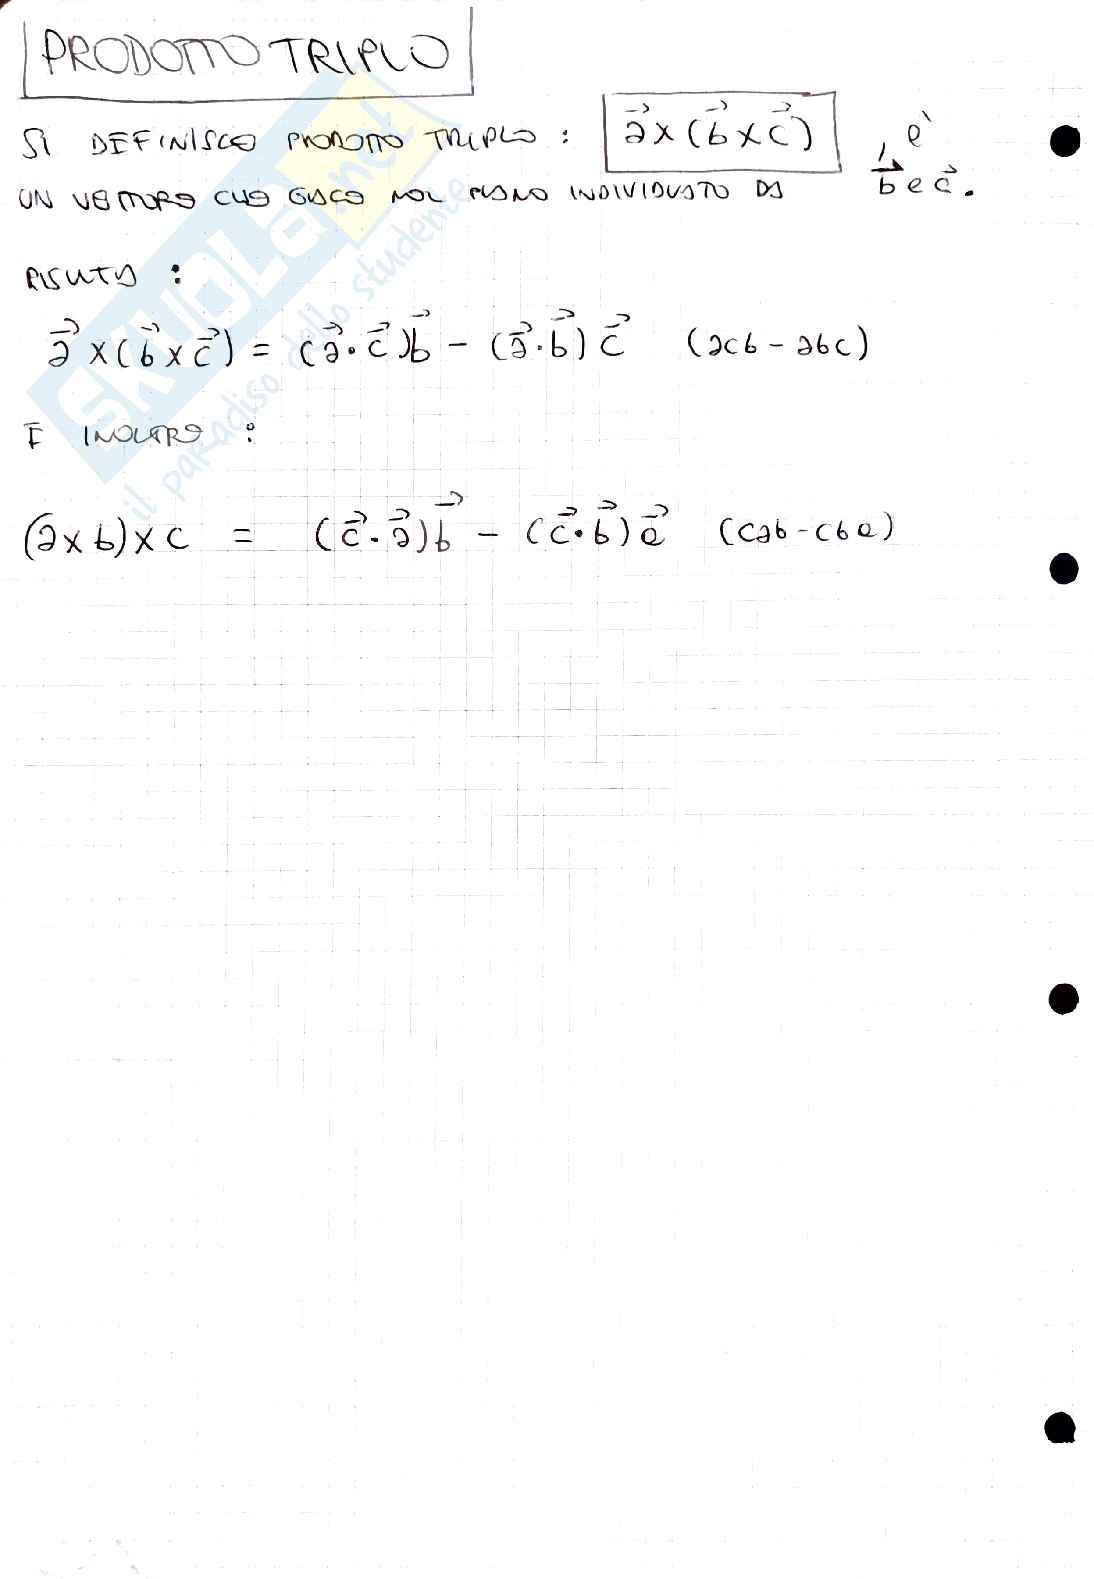 PRODOTTO TRIPLO
SI DEFINISCE PRODOTTO TRIPLO : a⃗ × (b⃗ × c⃗) è
UN VETTORE CHE GIACE NEL PIANO INDIVIDUATO DA b⃗ e c⃗.
RISULTA :
a⃗ × (b⃗ × c⃗) = (a⃗ · c⃗)b⃗ - (a⃗ · b⃗) c⃗ (acb - abc)
E INOLTRE :
(a × b) × c = (c⃗ · a⃗)b⃗ - (c⃗ · b⃗) a⃗ (cab - cba)
SKUOLA.net
il paradiso dello studente